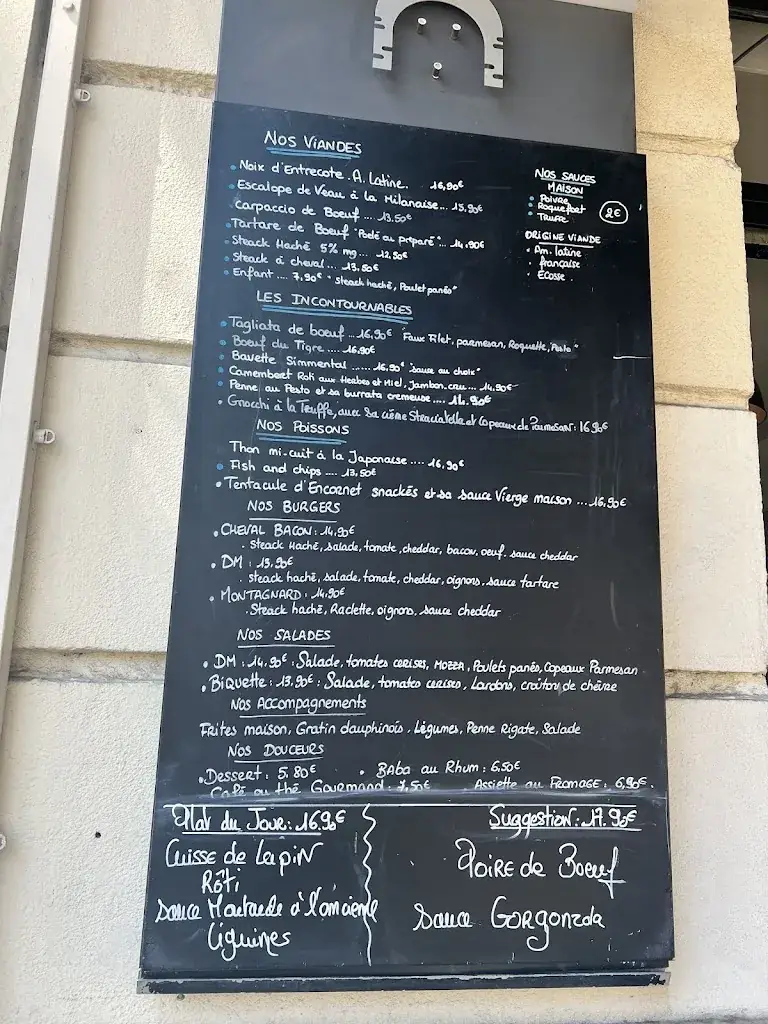 NOS VIANDES
• Noix d'Entrecote. A. Latine. 16,90€
• Escalope de Veau à la Milanaise... 15,90€
Carpaccio de Boeuf .... 13.50€
• Tartare de Boeuf "Poelé ou préparé"... 14,90€
• Steack Haché 5% mg.... 12,50€
• Steack à cheval.... 13,50€
• Enfant .... 7,90€ "Steack haché, Poulet panés"
NOS SAUCES
MAISON
• Poivre
• Roquefort
• Truffe
2€
ORIGINE VIANDE
• Am. latine
• française
• Écosse.
LES INCONTOURNABLES
• Tagliata de boeuf ...16,90€ "Faux Filet, parmesan, Roquette, Pesto"
• Boeuf du Tigre .... 16,90€
• Bavette Simmental ...... 16,90€ "sauce au choix"
• Camembert Roti aux Herbes et Miel, Jambon cru... 14,90€
• Penne au Pesto et sa burrata cremeuse.... 14,90€
• Gnocchi à la Truffe, avec sa crème Straciatella et Copeaux de Parmesan: 16,90€
NOS POISSONS
Thon mi-cuit à la Japonaise .... 16,90€
• Fish and chips .... 13,50€
• Tentacule d'Encornet snackés et sa sauce Vierge maison ...16,90€
NOS BURGERS
• CHEVAL BACON: 14,90€
. Steack Haché, salade, tomate, cheddar, bacon, oeuf. sauce cheddar
• DM: 13,90€
. steack haché, salade, tomate, cheddar, oignons. sauce tartare
• MONTAGNARD: 14,90€
. Steack haché, Raclette, oignons, sauce cheddar
NOS SALADES
• DM: 14,90€: Salade, tomates cerises, MOZZA, Poulets panés, Copeaux Parmesan
• Biquette: 13.90€: Salade, tomates cerises, Lardons, croûton de chèvre
NOS ACCOMPAGNEMENTS
Frites maison, Gratin dauphinois, Légumes, Penne Rigate, Salade
NOS DOUCEURS
• Dessert: 5.80€ • BABA au Rhum: 6,50€
Café ou thé Gourmand: 7,50€ Assiette au FROMAGE: 6,90€.
Plat du Jour: 16.90€
Cuisse de lapin
Rôti
sauce Moutarde à l'ancienne
liguines
Suggestion: 17.90€
Poire de Boeuf
sauce Gorgonzola